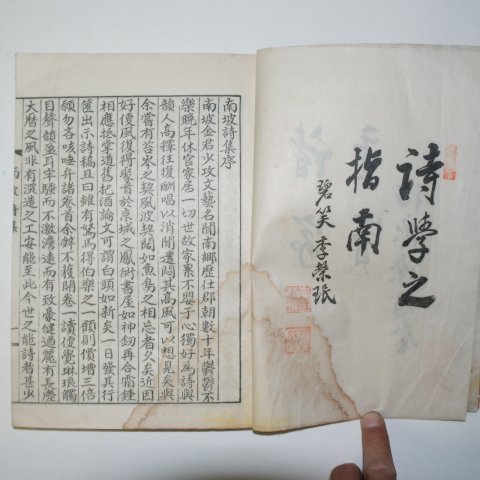 詩學之
指南
碧笑 李榮珉
南坡詩集序
南坡金君少攻文藝名聞南鄉歷仕郡朝數十年鬱鬱不
樂晚年休官家居一切世故家累不嬰于心獨好為詩與
韻人高釋往復酬唱以消閒遣悶其高風可以想見矣與
余嘗有苔岑之契風波契闊如魚鳥之相忘者久矣近因
好便風復得聚首於京城之鳳街書屋如神釰再合霜鍾
相應抵堂道舊把酒論文可謂白頭如新矣一日發其行
篋出示詩稿且曰雖有駑馬得伯樂之一顧則價增三倍
願勿吝咳唾弁諸卷首余辭不獲開卷一讀便覺琳琅觸
目聲韻盈耳牢騷而不激濃遠而有致豪健過麗有長慶
大曆之風非有深造之工安能至此今世之能詩者甚少
南坡詩集